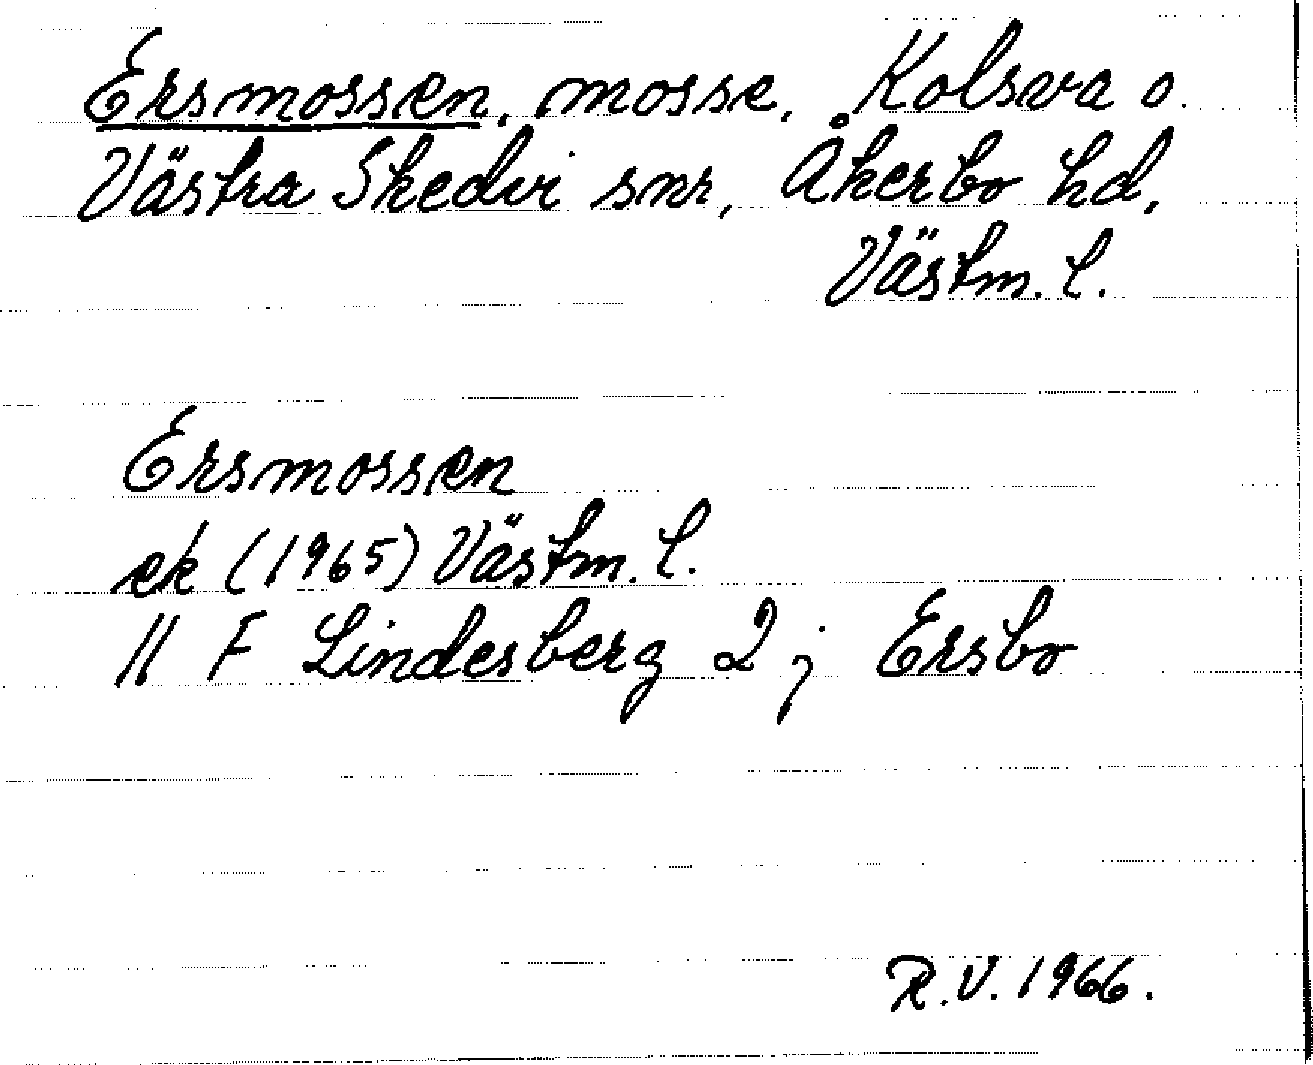 Ersmossen, mosse, Kolsva o.
Västra Skedvi snr, Åkerbo hd,
Västm. l.
Ersmossen
ek (1965) Västm. l.
11 F Lindesberg 2 j Ersbo
R.V. 1966.